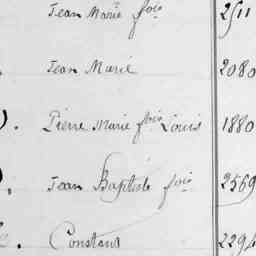 Jean Marie fois 2511
Jean Marie 2080
Pierre Marie fois Louis 1880
Jean Baptiste fois 2569
Constant 229